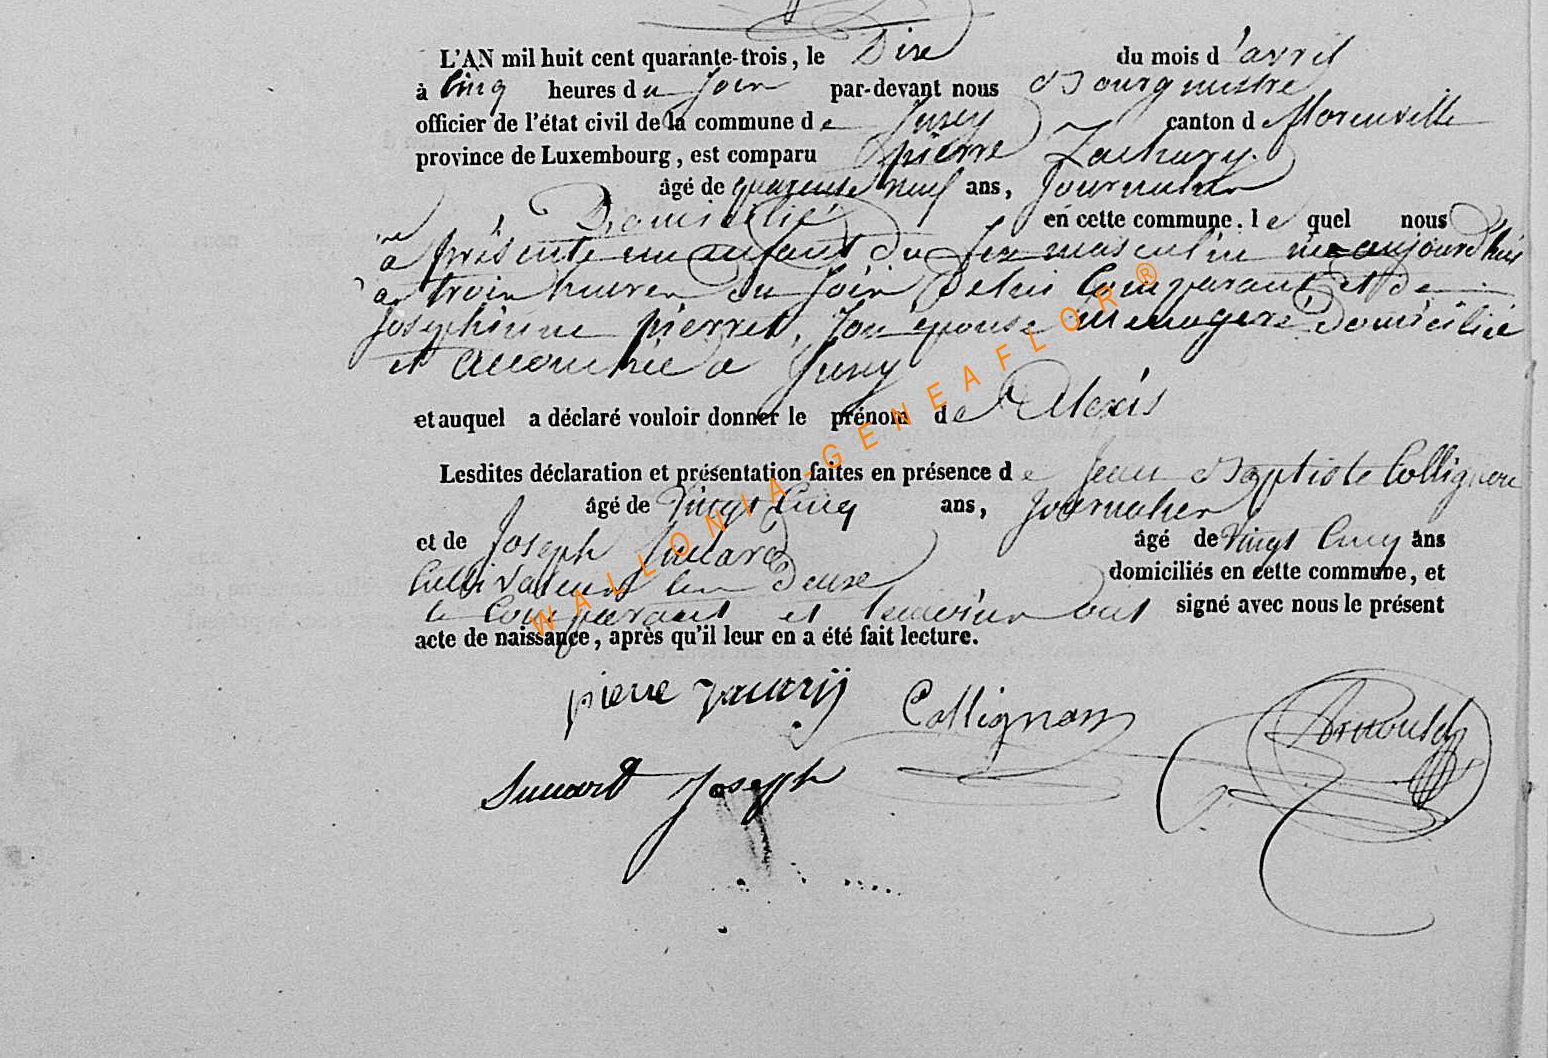 L'AN mil huit cent quarante-trois, le Dixe du mois d'avril
à Cinq heures du soir par-devant nous Bourgmestre
officier de l'état civil de la commune de Jusey canton de Morenville
province de Luxembourg, est comparu pierre Zachary
âgé de quarente neuf ans, Journalier
Domicilié en cette commune. lequel nous
a présenté un enfant du sex masculin né aujourd'hui
a trois heures du soir de lui Comparant et de
Josephinne pierret, son épouse menagere domicilié
et accouchée a Jusey
et auquel a déclaré vouloir donner le prénom de Alexis
Lesdites déclaration et présentation faites en présence de Jean Baptiste Collignon
âgé de Vingt Cinq ans, Journalier
et de Joseph âgé de Vingt Cinq ans
Cultivateur domiciliés en cette commune, et
le Comparant et temoins ont signé avec nous le présent
acte de naissance, après qu'il leur en a été fait lecture.
pierre zacarij Collignon
Joseph
WALLONIA-GENEAFLOR®